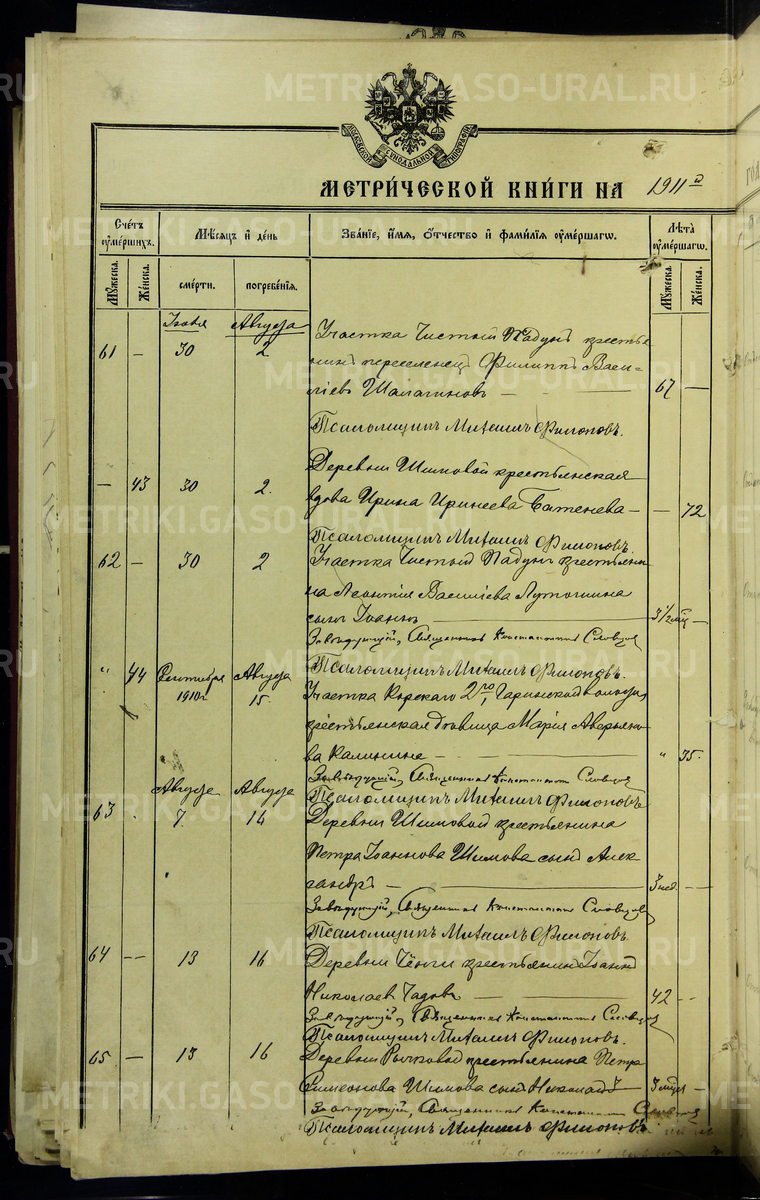 METRIKI.GASO-URAL.RU
МОСКОВСКОЙ СѴНОДАЛЬНОЙ ТИПОГРАФІИ
МЕТРИ́ЧЕСКОЙ КНИ́ГИ НА 1911 г.
Сче́тъ оуме́ршихъ.
Мѣ́сяцъ и де́нь
Зва́нїе, и́мя, о҆́тчество и фами́лїя оуме́ршагѡ.
Лѣ́та оуме́ршагѡ.
Му́жеска.
Же́нска.
сме́рти.
погребе́нїя.
Му́жеска.
Же́нска.
Іюля Августа
61 — 30 2 Участка Чистый Падунъ крестья-
нинъ переселенецъ Филиппъ Васи-
ліевъ Шалагиновъ — 67 —
Псаломщикъ Михаилъ Филоновъ.
— 43 30 2. Деревни Шиловой крестьянская
вдова Ирина Иринеева Батенева — — 72
Псаломщикъ Михаилъ Филоновъ.
62 — 30 2 Участка Чистый Падунъ крестьяни-
на Леонтія Василіева
сынъ Іоаннъ — 3 1/2 мѣс —
Завѣдующій, Священникъ Константинъ Словцовъ
Псаломщикъ Михаилъ Филоновъ.
" 44 Сентября 1910 г. Августа 15. Участка 2го, Гаринской волости,
крестьянская дѣвица Марія Аверьяно-
ва Калинина — " 35.
Завѣдующій, Священникъ Константинъ Словцовъ
Псаломщикъ Михаилъ Филоновъ
Августа Августа
63 . 7 14 Деревни Шимовой крестьянина
Петра Іоаннова Шимова сынъ Алек-
сандръ — 3 нед. —
Завѣдующій, Священникъ Константинъ Словцовъ
Псаломщикъ Михаилъ Филоновъ.
64 — 13 16 Деревни крестьянинъ Іоаннъ
Николаевъ — 42 —
Завѣдующій, Священникъ Константинъ Словцовъ
Псаломщикъ Михаилъ Филоновъ.
65 — 13 16 Деревни Рычковой крестьянина Петра
Симеонова Шимова сынъ —
Завѣдующій, Священникъ Константинъ Словцовъ
Псаломщикъ Михаилъ Филоновъ.